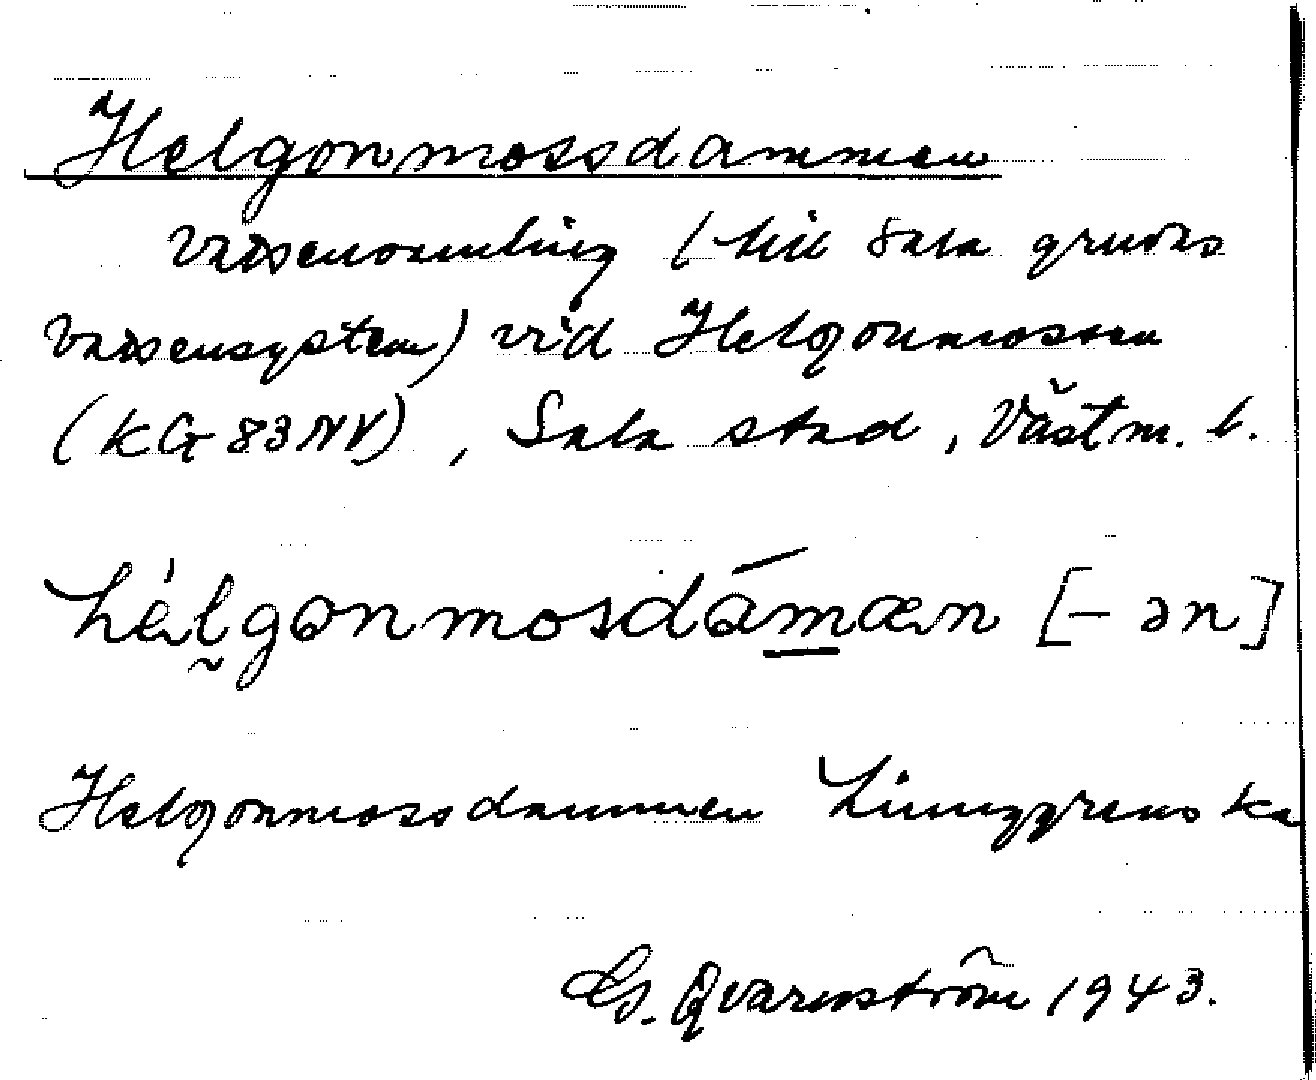 Helgonmossdammen
Vattensamling (till Sala gruvas
vattensystem) vid Helgonmossen
(KG 83 NV), Sala stad, Västm. l.
hèl̰gonmosdámæn [– ən]
Helgonmossdammen Ljunggrens ka
G. Qvarnström 1943.